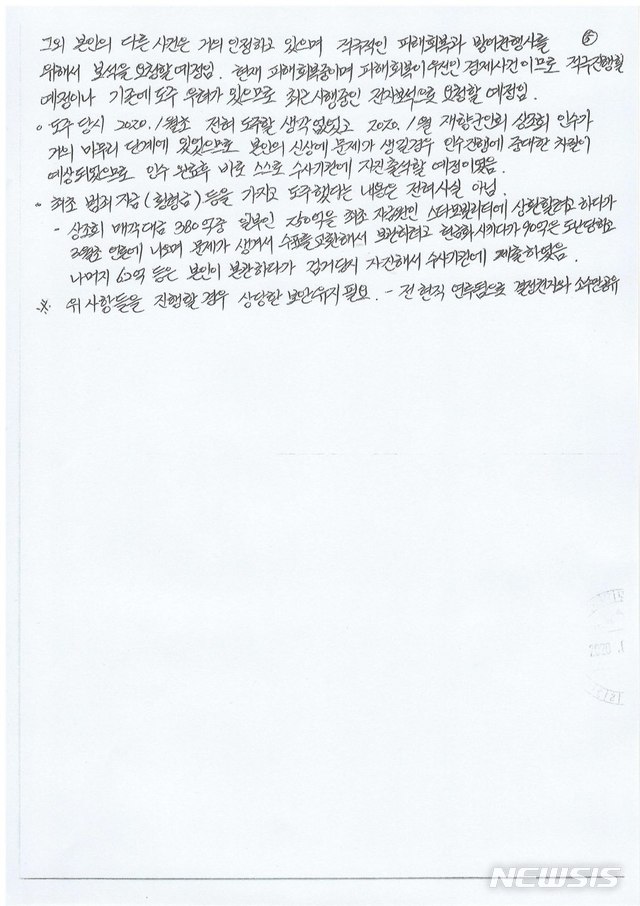 그외 본인의 다른 사건은 거의 인정하고 있으며 적극적인 피해회복과 방어권행사를 ⑤
위해서 보석을 요청할 예정임. 현재 피해회복중이며 피해회복이 우선인 경제사건이므로 적극진행할
예정이나 기존에 도주 우려가 있으므로 최근 시행중인 전자보석으로 요청할 예정임.
◦ 도주 당시 2020. 1월초 전혀 도주할 생각 없었고 2020. 1월 재향군인회 상조회 인수가
거의 마무리 단계에 있었으므로 본인의 신상에 문제가 생길경우 인수진행에 중대한 차질이
예상되었으므로 인수 완료후 바로 스스로 수사기관에 자진 출석할 예정이었음.
◦ 최초 범죄 자금 (횡령금) 등을 가지고 도주했다는 내용은 전혀 사실 아님.
- 상조회 매각대금 380억중 일부인 250억을 최초 자금원인 스타모빌리티에 상환할려고 하다가
3월초 언론에 나오며 문제가 생겨서 수표를 교환해서 보관하려고 현금화시키다가 90억은 도난당하고
나머지 60억 등은 본인이 보관하다가 검거당시 자진해서 수사기관에 제출하였음.
※ 위 사항들을 진행할 경우 상당한 보안유지 필요. - 전 현직 연루됨으로 결정권자와 소수만공유
2020. 1
NEWSIS